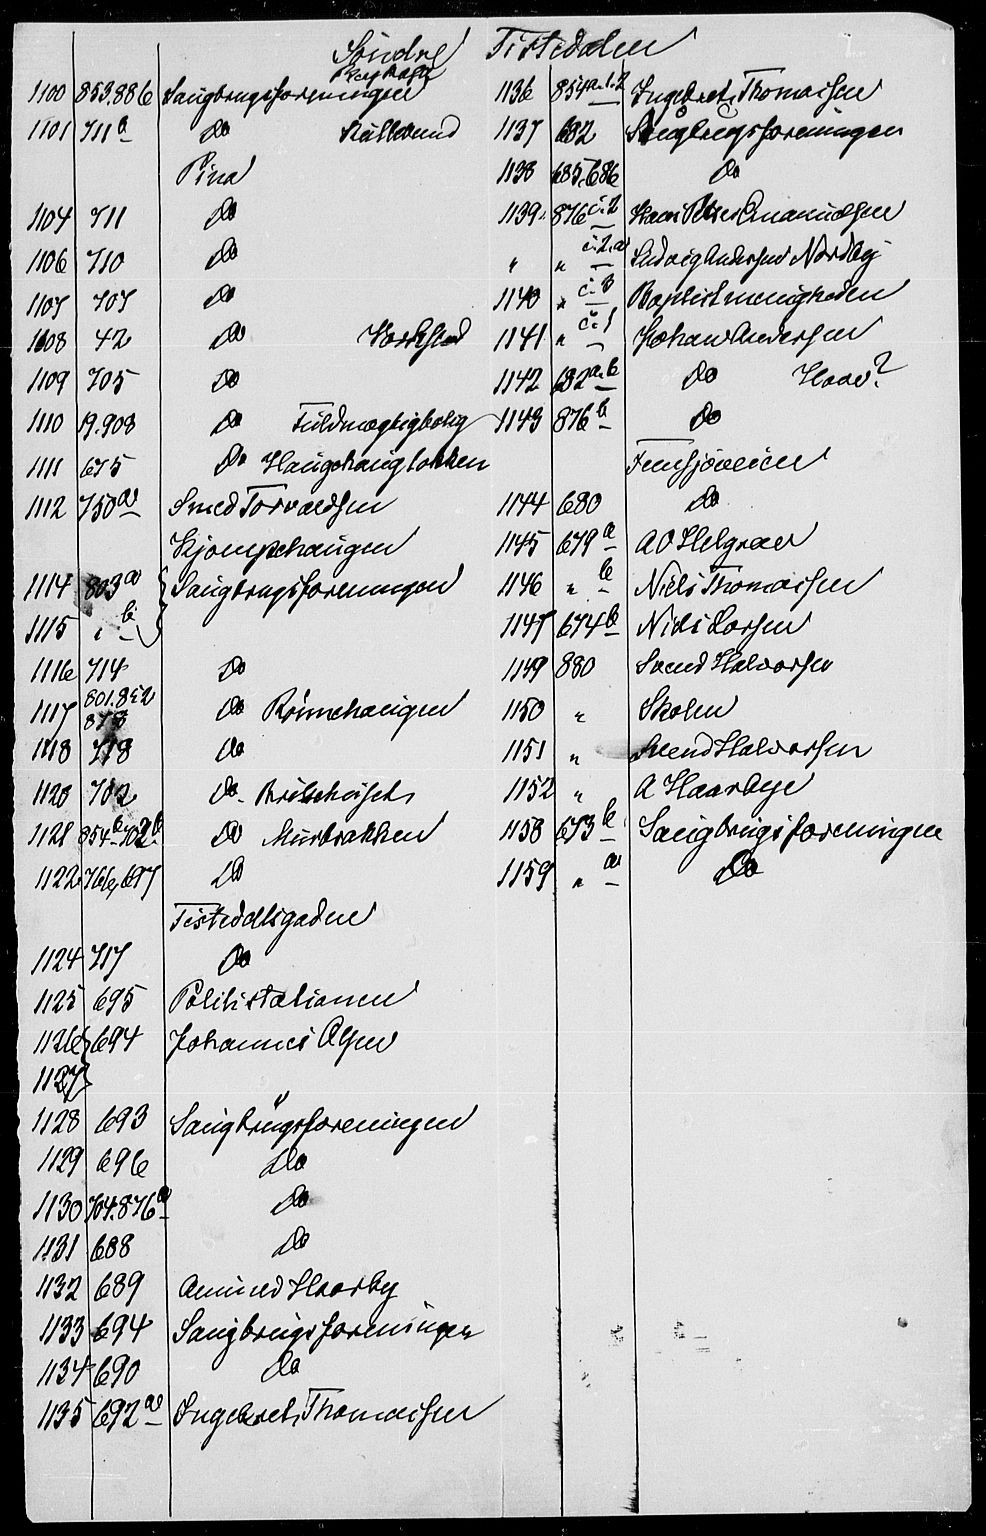 Søndre Tistedalen
1100 853.886 Saugbrugsforeningen
1101 711b Do
Pina
1104 711 Do
1106 710 Do
1107 707 Do
1108 42 Do
1109 705 Do
1110 19.908 Do Fuldmægtigbolig
1111 675 Do Haugehaugløkken
1112 750a Smed Torvaldsen
Kjømpehaugen
1114 803a Saugbrugsforeningen
1115 " b
1116 714 Do
1117 801.852 878 Do Rønnehaugen
1118 718 Do
1120 702 Do
1121 854b 702b Do Murbrakken
1122 766,697 Do
Tistedalsgaden
1124 717 Do
1125 695 Politistationen
1126 694 Johannes Olsen
1127
1128 693 Saugbrugsforeningen
1129 696 Do
1130 704.876a Do
1131 688 Do
1132 689 Haarby
1133 694 Saugbrugsforeningen
1134 690 Do
1135 692a Ingebret Thomassen
1136 854 Ingebret Thomassen
1137 682 Saugbrugsforeningen
1138 685.686 Do
1139 876 c.2 Hans Peter Emanuelsen
" " c.2.a Ludvig Andersen Nordby
1140 " c.3 Baptistmenigheden
1141 " c.1 Johan Andersen
1142 682a.b Do Haav?
1143 876b Do
Femsjøveien
1144 680 Do
1145 679a A O Helgraa
1146 " b Niels Thomassen
1147 674b Niels Larsen
1149 880 Svend Halvorsen
1150 " Skolen
1151 " Svend Halvorsen
1152 " A Haarbye
1158 673b Saugbrugsforeningen
1159 " a Do